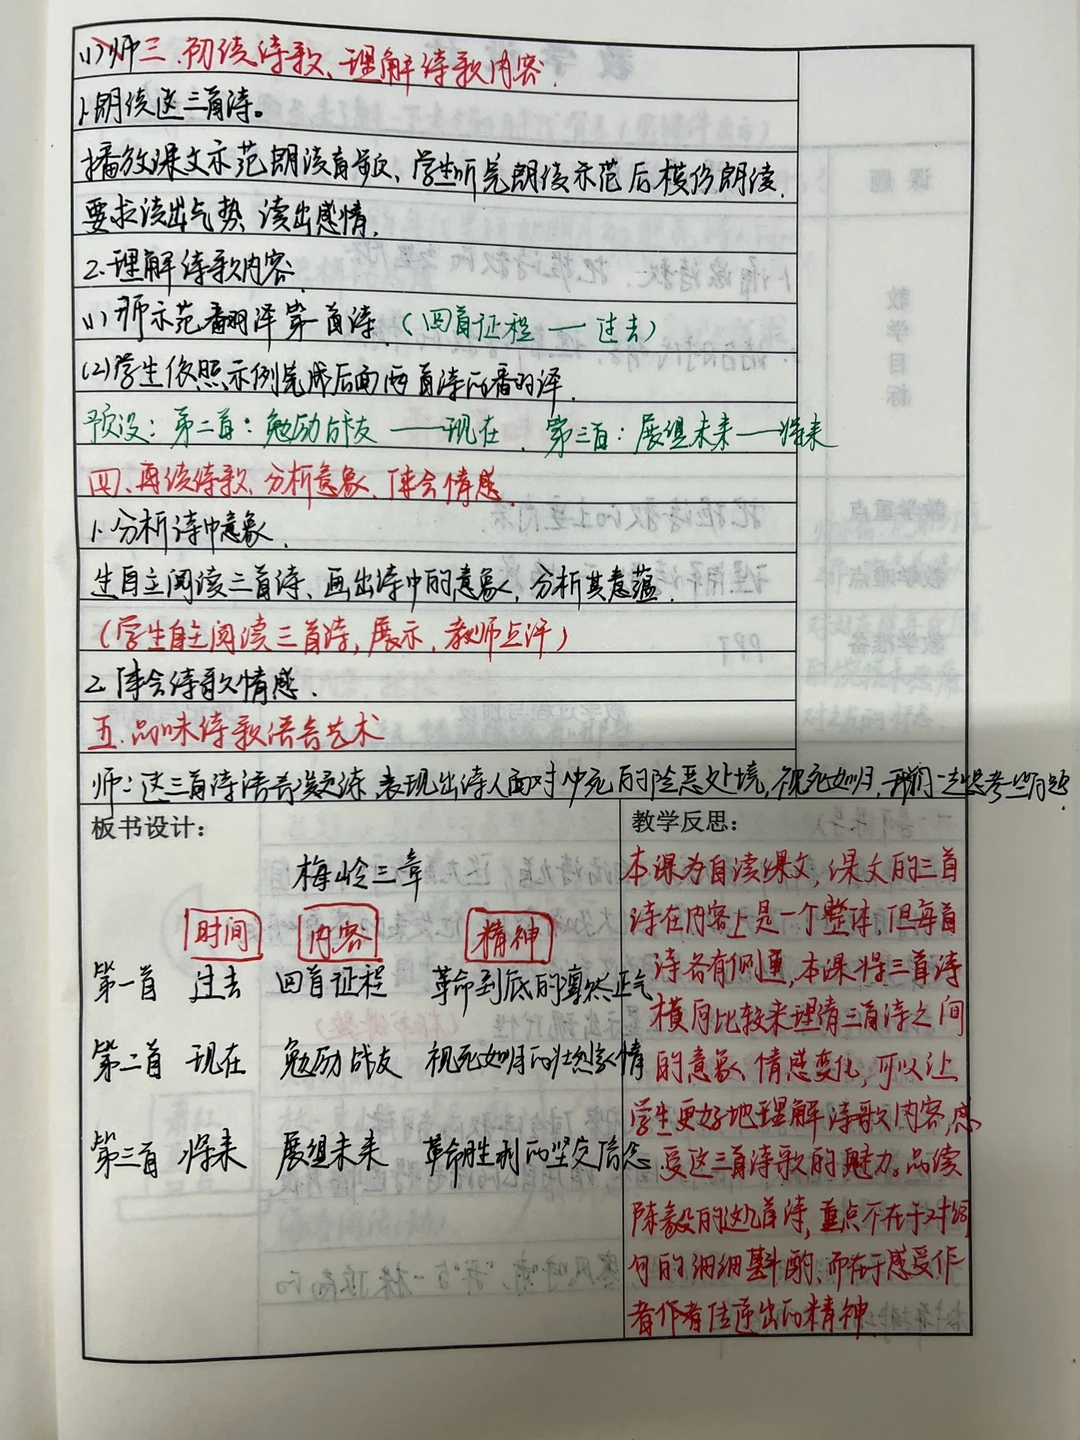 (1)师三.初读诗歌、理解诗歌内容.
1.朗读这三首诗。
播放课文示范朗读音频、学生听完朗读示范后模仿朗读.
要求读出气势 读出感情.
2.理解诗歌内容
(1)师示范翻译第一首诗.(回首征程——过去)
(2)学生依照示例完成后面两首诗的翻译.
预设:第二首:勉励战友——现在.第三首:展望未来——将来
四.再读诗歌、分析意象、体会情感.
1.分析诗中意象.
生自主阅读三首诗、画出诗中的意象,分析其意蕴.
(学生自主阅读三首诗,展示,教师点评)
2.体会诗歌情感.
五.品味诗歌语言艺术
师:这三首诗语言凝练,表现出诗人面对必死的险恶处境,视死如归,我们一起思考些问题.
板书设计:
梅岭三章
时间 内容 精神
第一首 过去 回首征程 革命到底的凛然正气
第二首 现在 勉励战友 视死如归的壮烈豪情
第三首 将来 展望未来 革命胜利的坚定信念
教学反思:
本课为自读课文,课文的三首
诗在内容上是一个整体,但每首
诗各有侧重,本课将三首诗
横向比较来理清三首诗之间
的意象、情感变化,可以让
学生更好地理解诗歌内容,感
受这三首诗歌的魅力。品读
陈毅的这几首诗,重点不在于对词
句的细细斟酌,而在于感受作
者作者传递出的精神.